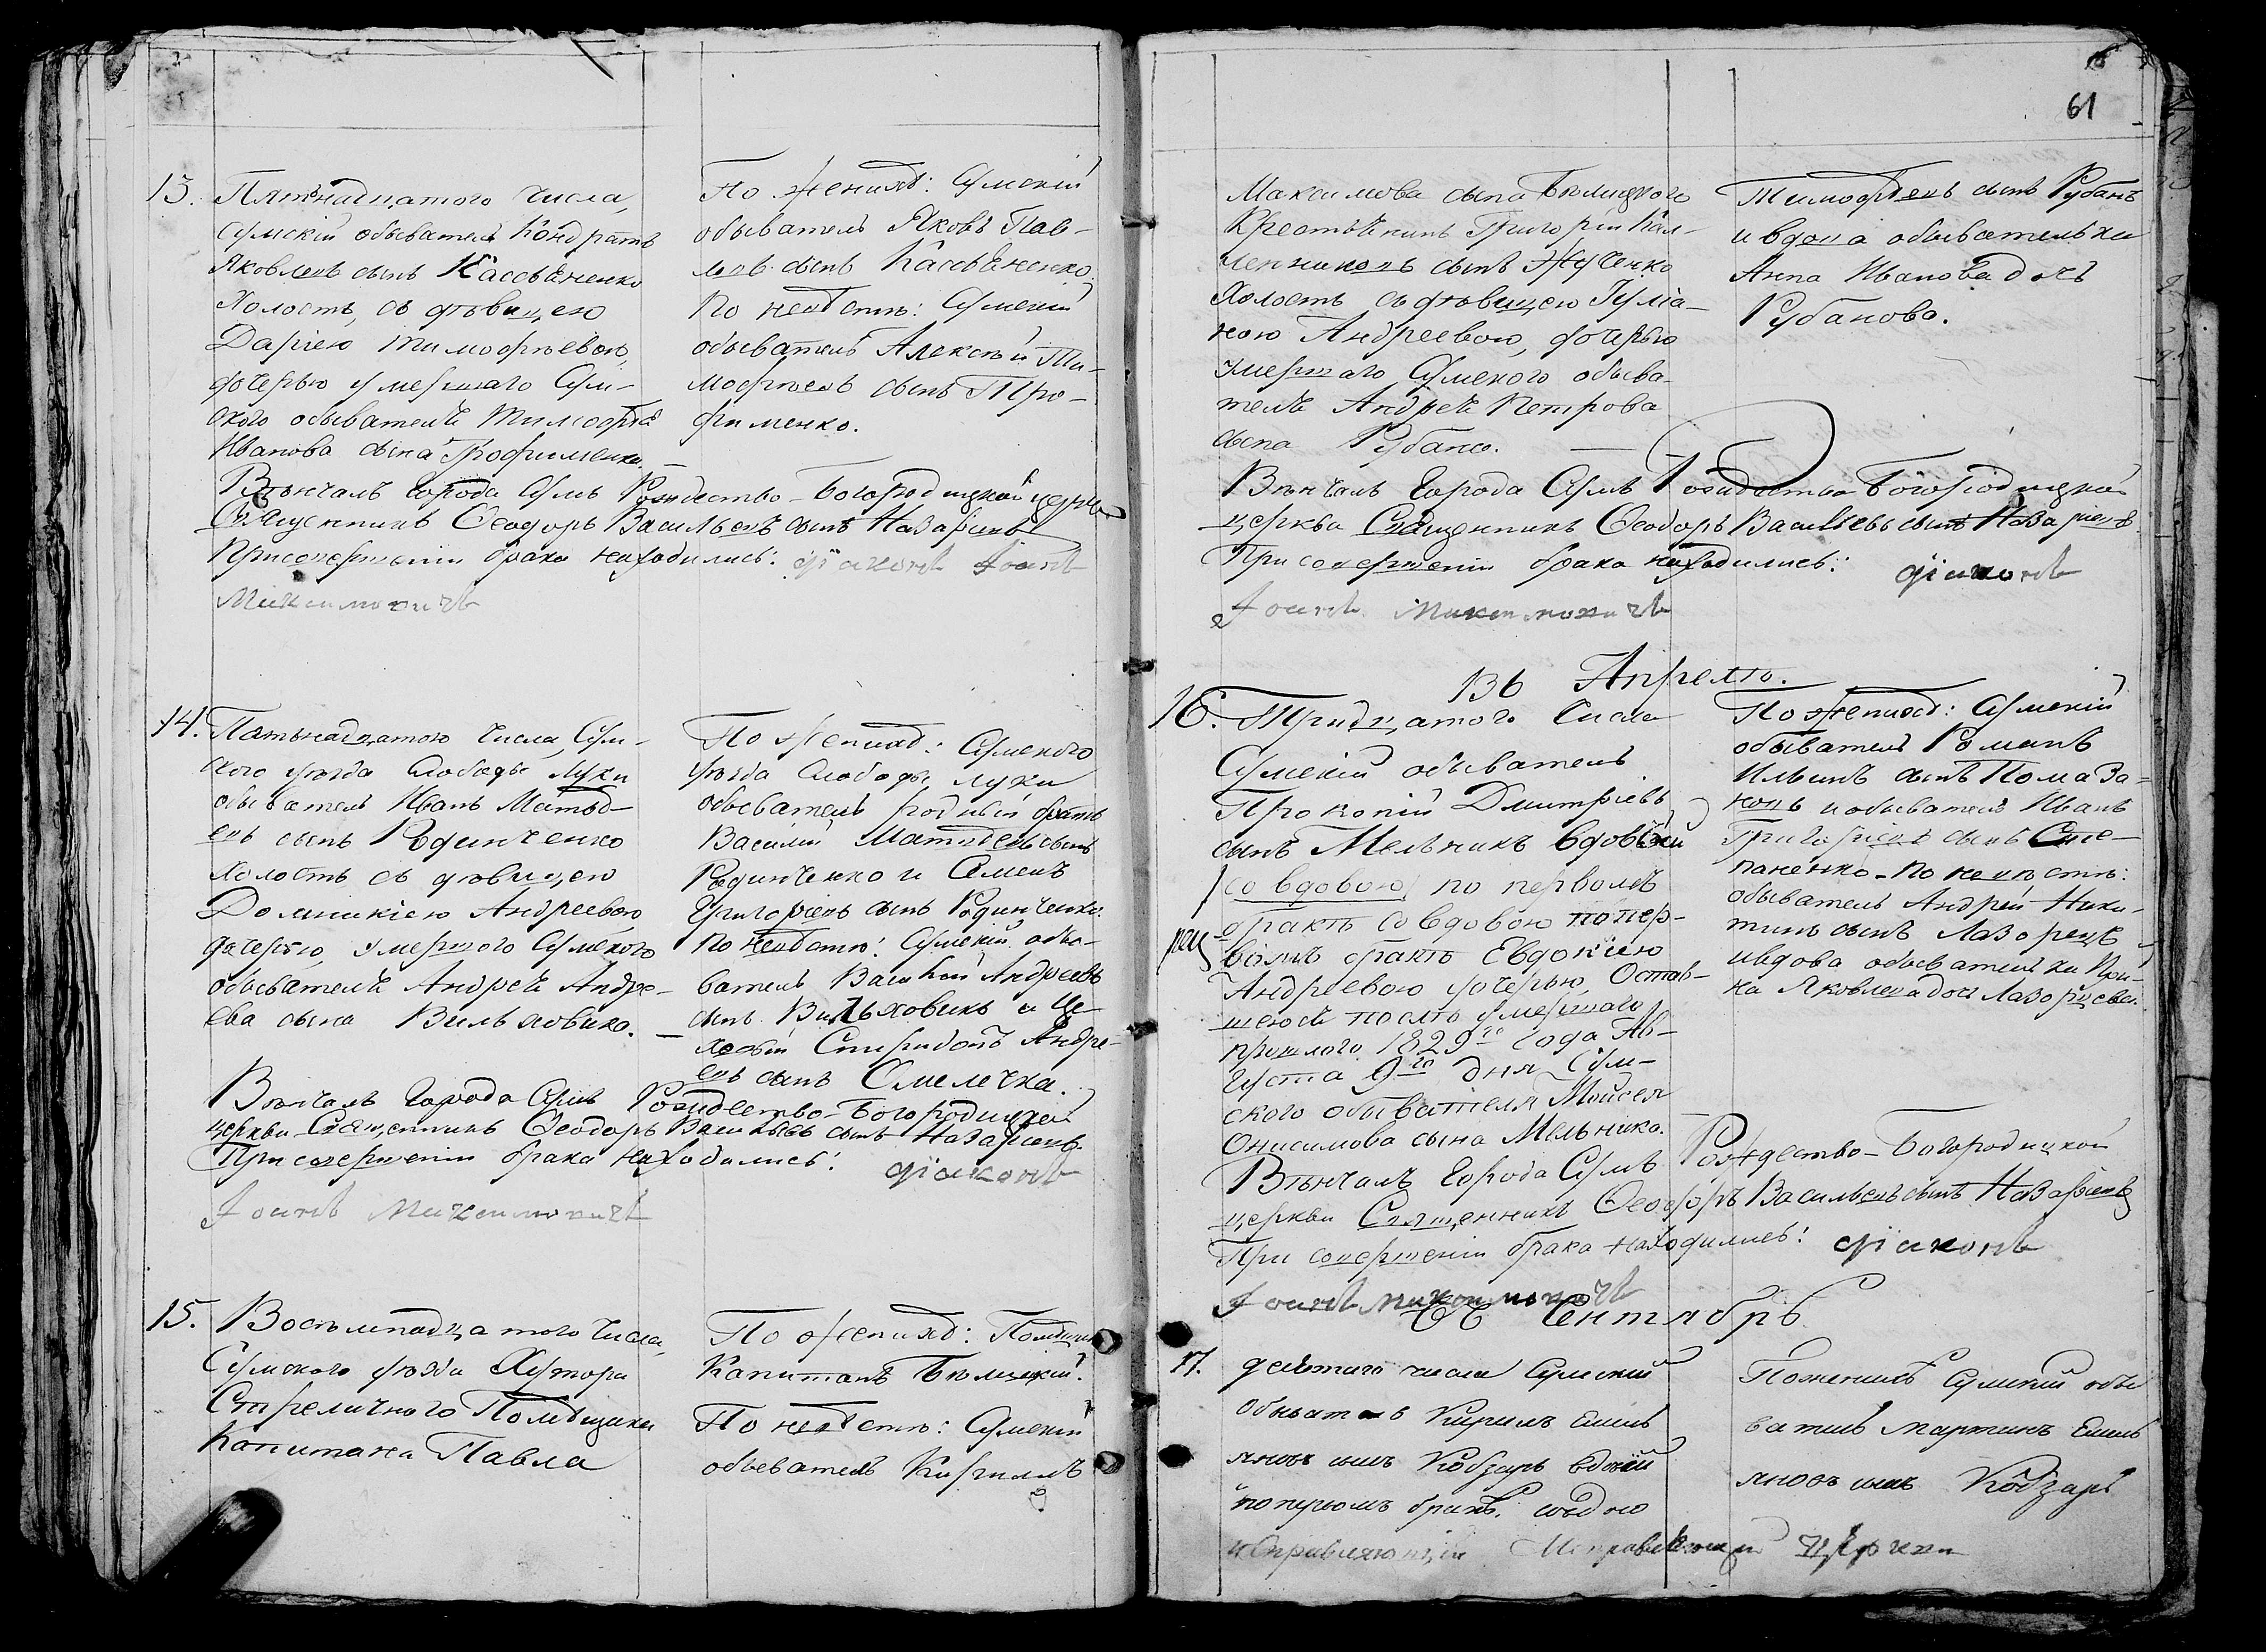 61
13. Пятнадцатого числа,
Сумскій обыватель Кондратъ
Яковлевъ сынъ Кассьененко
Холостъ, съ дѣвицею
Даріею Тимофѣевою,
дочерью умершаго Сум-
ского обывателя Тимофѣя
Иванова сына Трофименка.
По женихѣ: Сумскій
обыватель Яковъ Пав-
ловъ сынъ Кассьененко.
По невѣстѣ: Сумскій
обыватель Алексѣй Ти-
мофѣевъ сынъ Тро-
фименко.
Вѣнчалъ города Сумъ Рождество-Богородицкой церкви
Священникъ Ѳеодоръ Васильевъ сынъ Назарьевъ
При совершеніи брака находились: діаконъ Іоанъ
Максимовичъ
14. Пятьнадцатого числа, Сум-
ского уѣзда Слободы Луки
обыватель Иванъ Матвѣ-
евъ сынъ Родинченко
холостъ съ дѣвицею
Домникіею Андреевою
дочерью, умершого Сумского
обывателя Андрея Андре-
ева сына Вильховика.
По женихѣ: Сумского
уѣзда Слободы Луки
обыватель родный братъ
Василій Матвѣевъ сынъ
Родинченко и Семенъ
Григорьевъ сынъ Родинченко.
По невѣстѣ: Сумскій обы-
ватель Василій Андреевъ
сынъ Вильховикъ и Це-
ховый Спиридонъ Андре-
евъ сынъ Смелечка.
Вѣнчалъ города Сумъ Рождество-Богородицкой
церкви Священникъ Ѳеодоръ Васильевъ сынъ Назарьевъ.
При совершеніи брака находились: діаконъ
Іоанъ Максимовичъ
15. Восемнадцатого числа,
Сумского уѣзда Хутора
Стреличного Помѣщика
Капитана Павла
По женихѣ: Помѣщикъ
Капитанъ Бѣлицкій.
По невѣстѣ: Сумскій
обыватель Кириллъ
Максимова сына Бѣлицкого
Крестьянинъ Григорій
сынъ Жученко
Холостъ съ дѣвицею Гулiа-
ною Андреевою, дочерью
умершаго Сумского обыва-
теля Андрея Петрова
сына Рубана.
Тимофѣевъ сынъ Рубанъ
и вдова обывательки
Анна Иванова дочь
Рубанова.
Вѣнчалъ города Сумъ Рождество Богородицкой
церкви Священникъ Ѳеодоръ Васильевъ сынъ Назарьевъ.
При совершеніи брака находились: діаконъ
Іоанъ Максимовичъ
Въ Апрелѣ.
16. Тридцатого числа
Сумскій обыватель
Прокопій Дмитріевъ
сынъ Мельникъ вдовый
со вдовою, по первомъ
бракѣ со вдовою по пер-
вомъ бракѣ Евдокіею
Андреевою дочерью, Остав-
шеюся послѣ умершаго
прошлого 1829го года Ав-
густа 9го дня Сум-
ского обывателя Мойсея
Онисимова сына Мельника.
По женихѣ: Сумскій
обыватель Романъ
Ильинъ сынъ Помаза-
новъ и обыватель Иванъ
Григорьевъ сынъ Сте-
паненко. По невѣстѣ:
обыватель Андрей Ники-
тинъ сынъ Лазоренъ
и вдова обывателька Ири-
на Яковлева дочь
Вѣнчалъ города Сумъ Рождество-Богородицкой
церкви Священникъ Ѳеодоръ Васильевъ сынъ Назарьевъ
При совершеніи брака находились: діаконъ
Іоанъ Максимовичъ
Сентябрь
17. девятого числа Сумскій
Обыватель Кирилъ Емель
яновъ сынъ Кобзарь вдовый
по первомъ бракѣ.
По женихѣ Сумскій обы
ватель Мартинъ Емель
яновъ сынъ Кобзарь
церкви